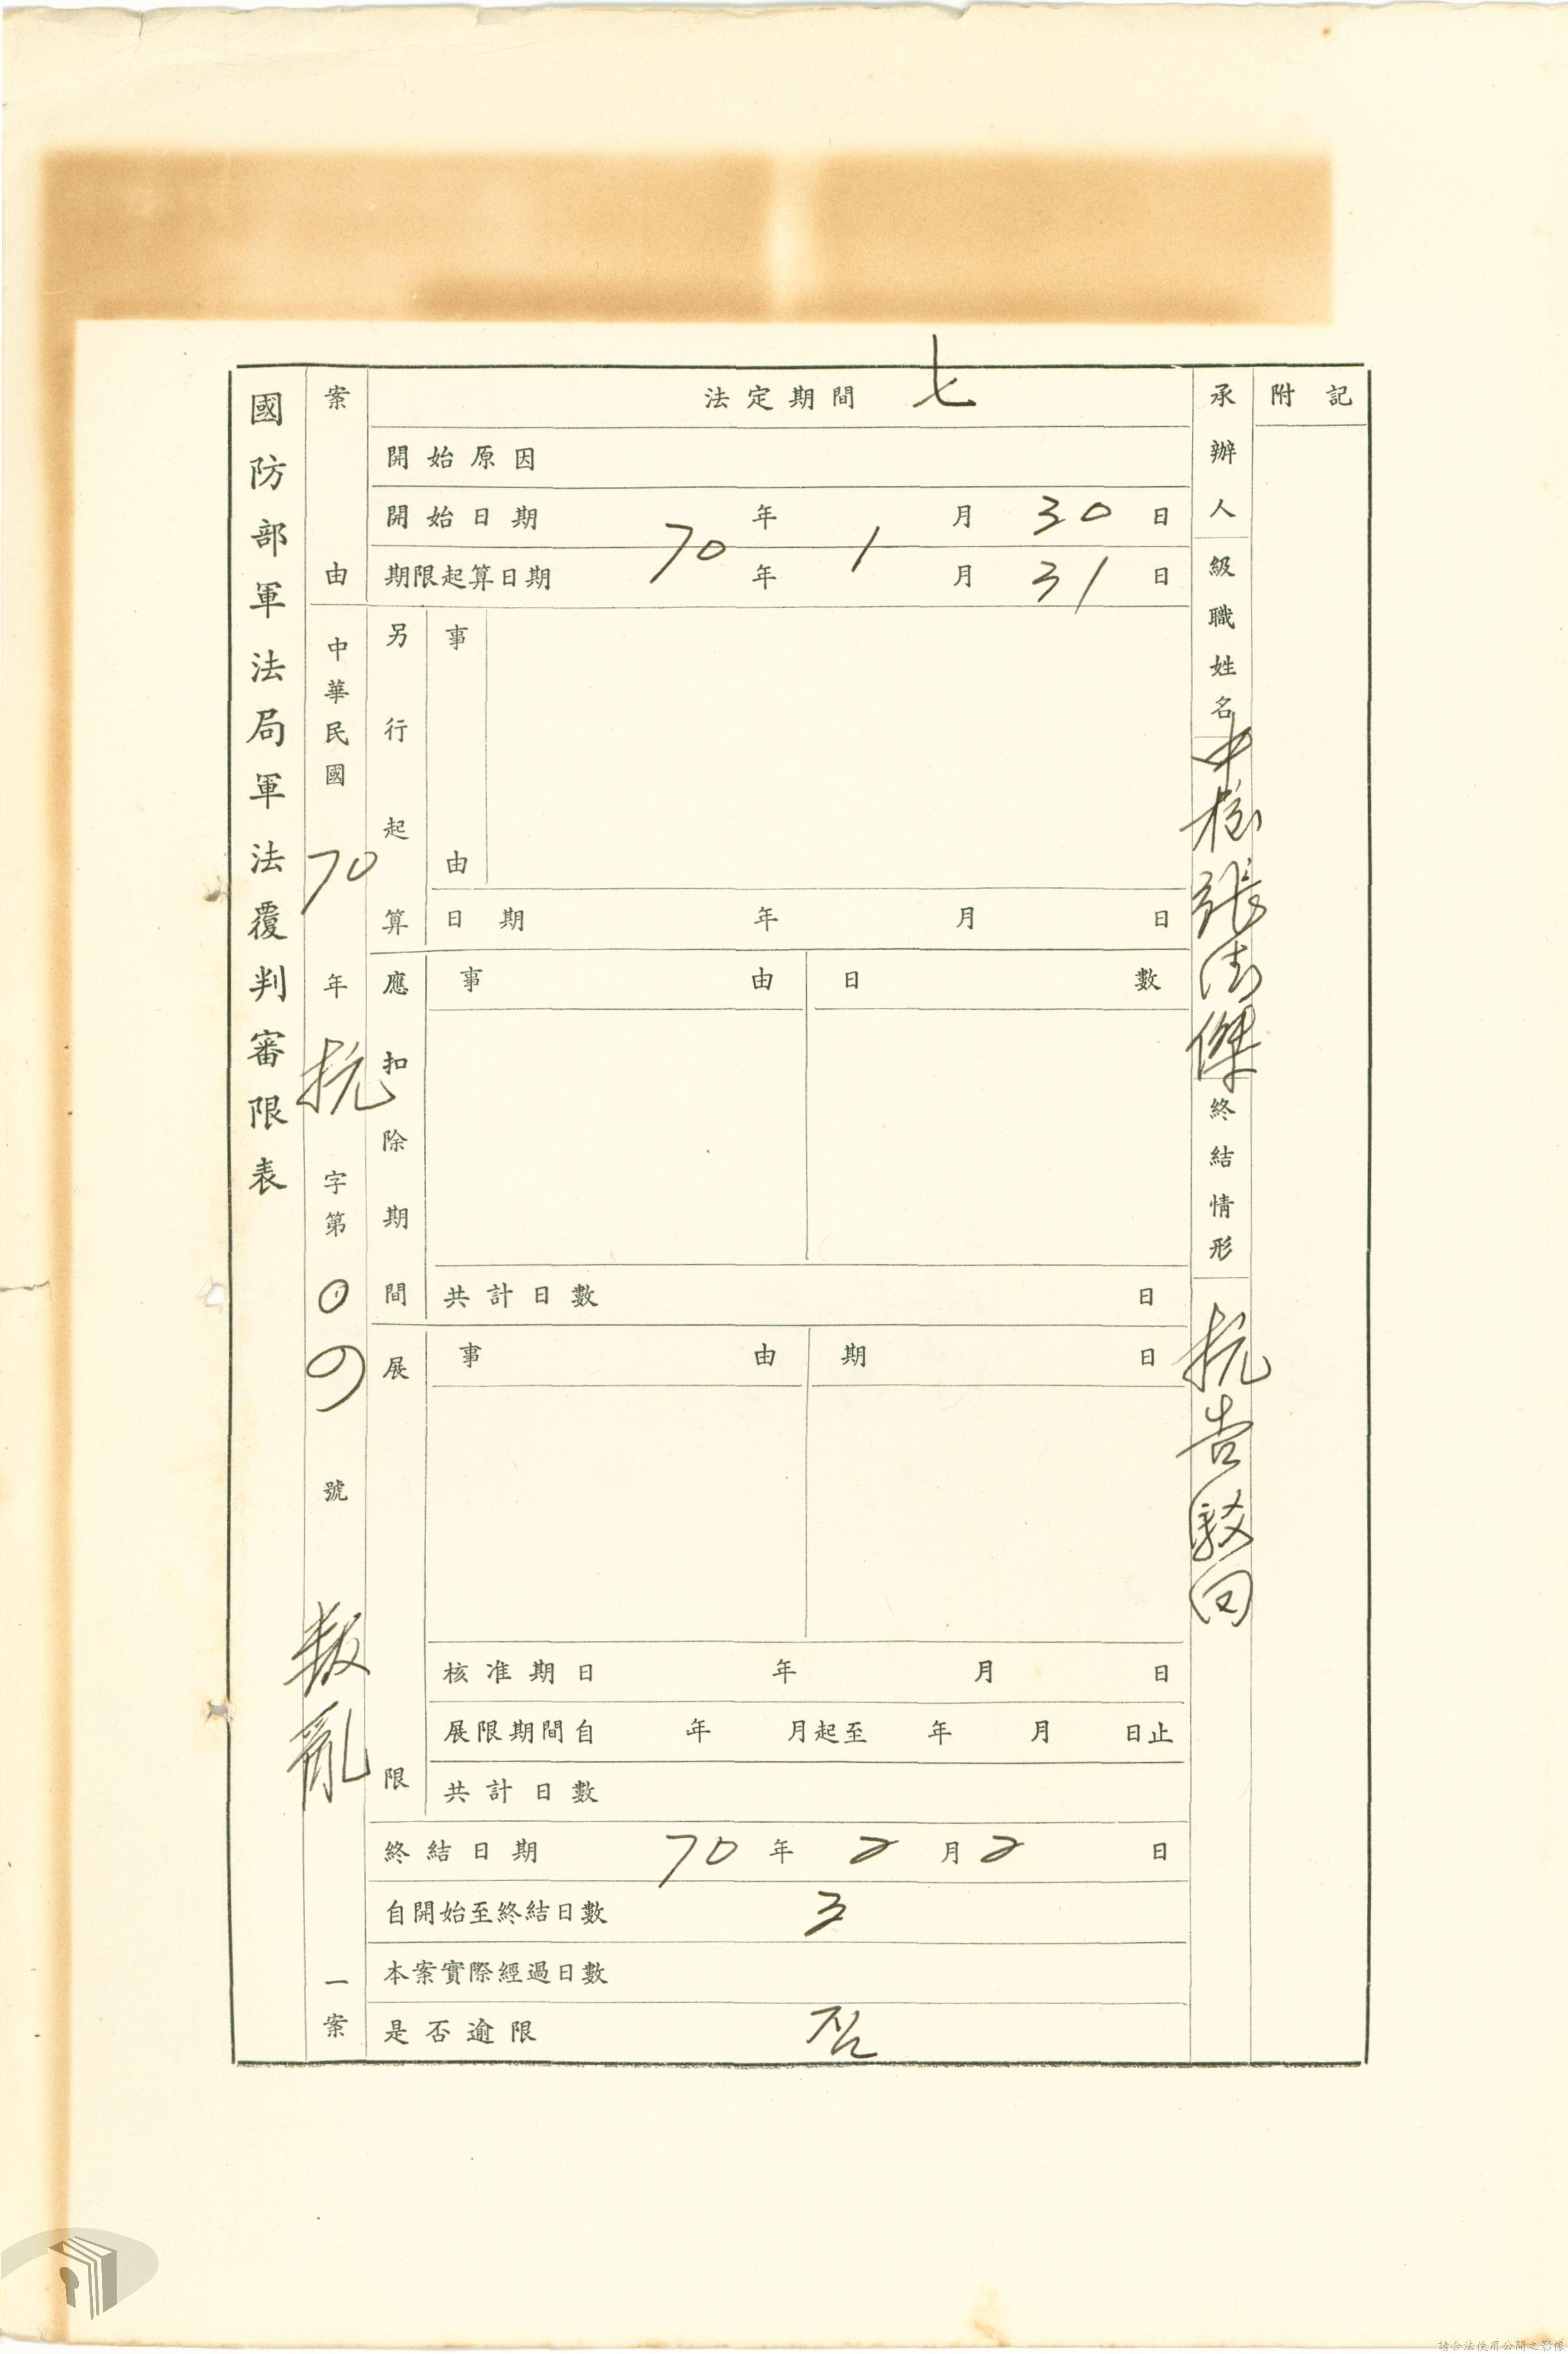 國防部軍法局軍法覆判審限表
案由
中華民國70年抗字第〇四號叛亂一案
法定期間 七
開始原因
開始日期 70年1月30日
期限起算日期 年 月31日
另行起算
事由
日期 年 月 日
應扣除期間
事由 日數
共計日數 日
展限
事由 期日
核准期日 年 月 日
展限期間自 年 月起至 年 月 日止
共計日數
終結日期 70年2月2日
自開始至終結日數 3
本案實際經過日數
是否逾限 否
承辦人級職姓名 中校張傑
終結情形 抗告駁回
附記
請合法使用公開之影像